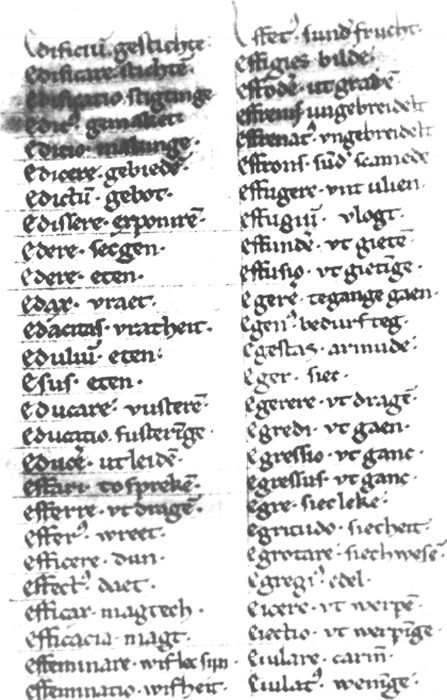 Edificiū. gestichte
Edificare. stichtē
Edificatio. stigtinge
Edit9. gemaket
Editio. makinge
Edicere. gebiedē
Edictū. gebot.
Edissere. exponirē.
Edere. secgen.
Edere. eten.
Edax. vraet.
Edacitas. vratheit.
Eduliuū. eten.
Esus. eten.
Educare. vusterē.
Educatio. fusterīge
Educē. utleidē.
Effari. to sprekē.
Efferre. vt dragē.
Effer9. wreet.
Efficere. dun.
Effect9. daet.
Efficax. magtech.
Efficacia. magt.
Effeminare. wiflec sijn.
Effeminatio. wifheit.
Effet9. sund frucht.
Effigies. bilde.
Effodē. ut gravē
Effrenis. ungebreidelt
Effrenat9. vngebreidelt
Effrons. sūd scamede
Effugere. vnt ulien.
Effugiū. vlogt.
Effundē. vt gietē.
Effusio. vt gietīge.
Egerē. tegange gaen.
Egen9. bedurfteg.
Egestas. armude.
Eger. siec.
Egerere. vt dragē.
Egredi. vt gaen.
Egressio. vt ganc.
Egressus. vt ganc.
Egre. siecleke.
Egritudo. siecheit.
Egrotare. siech wesē.
Egregi9. edel.
Eicere. vt werpē.
Eiectio. vt werpīge.
Eiulare. carīn.
Eiulat9. wenīge.